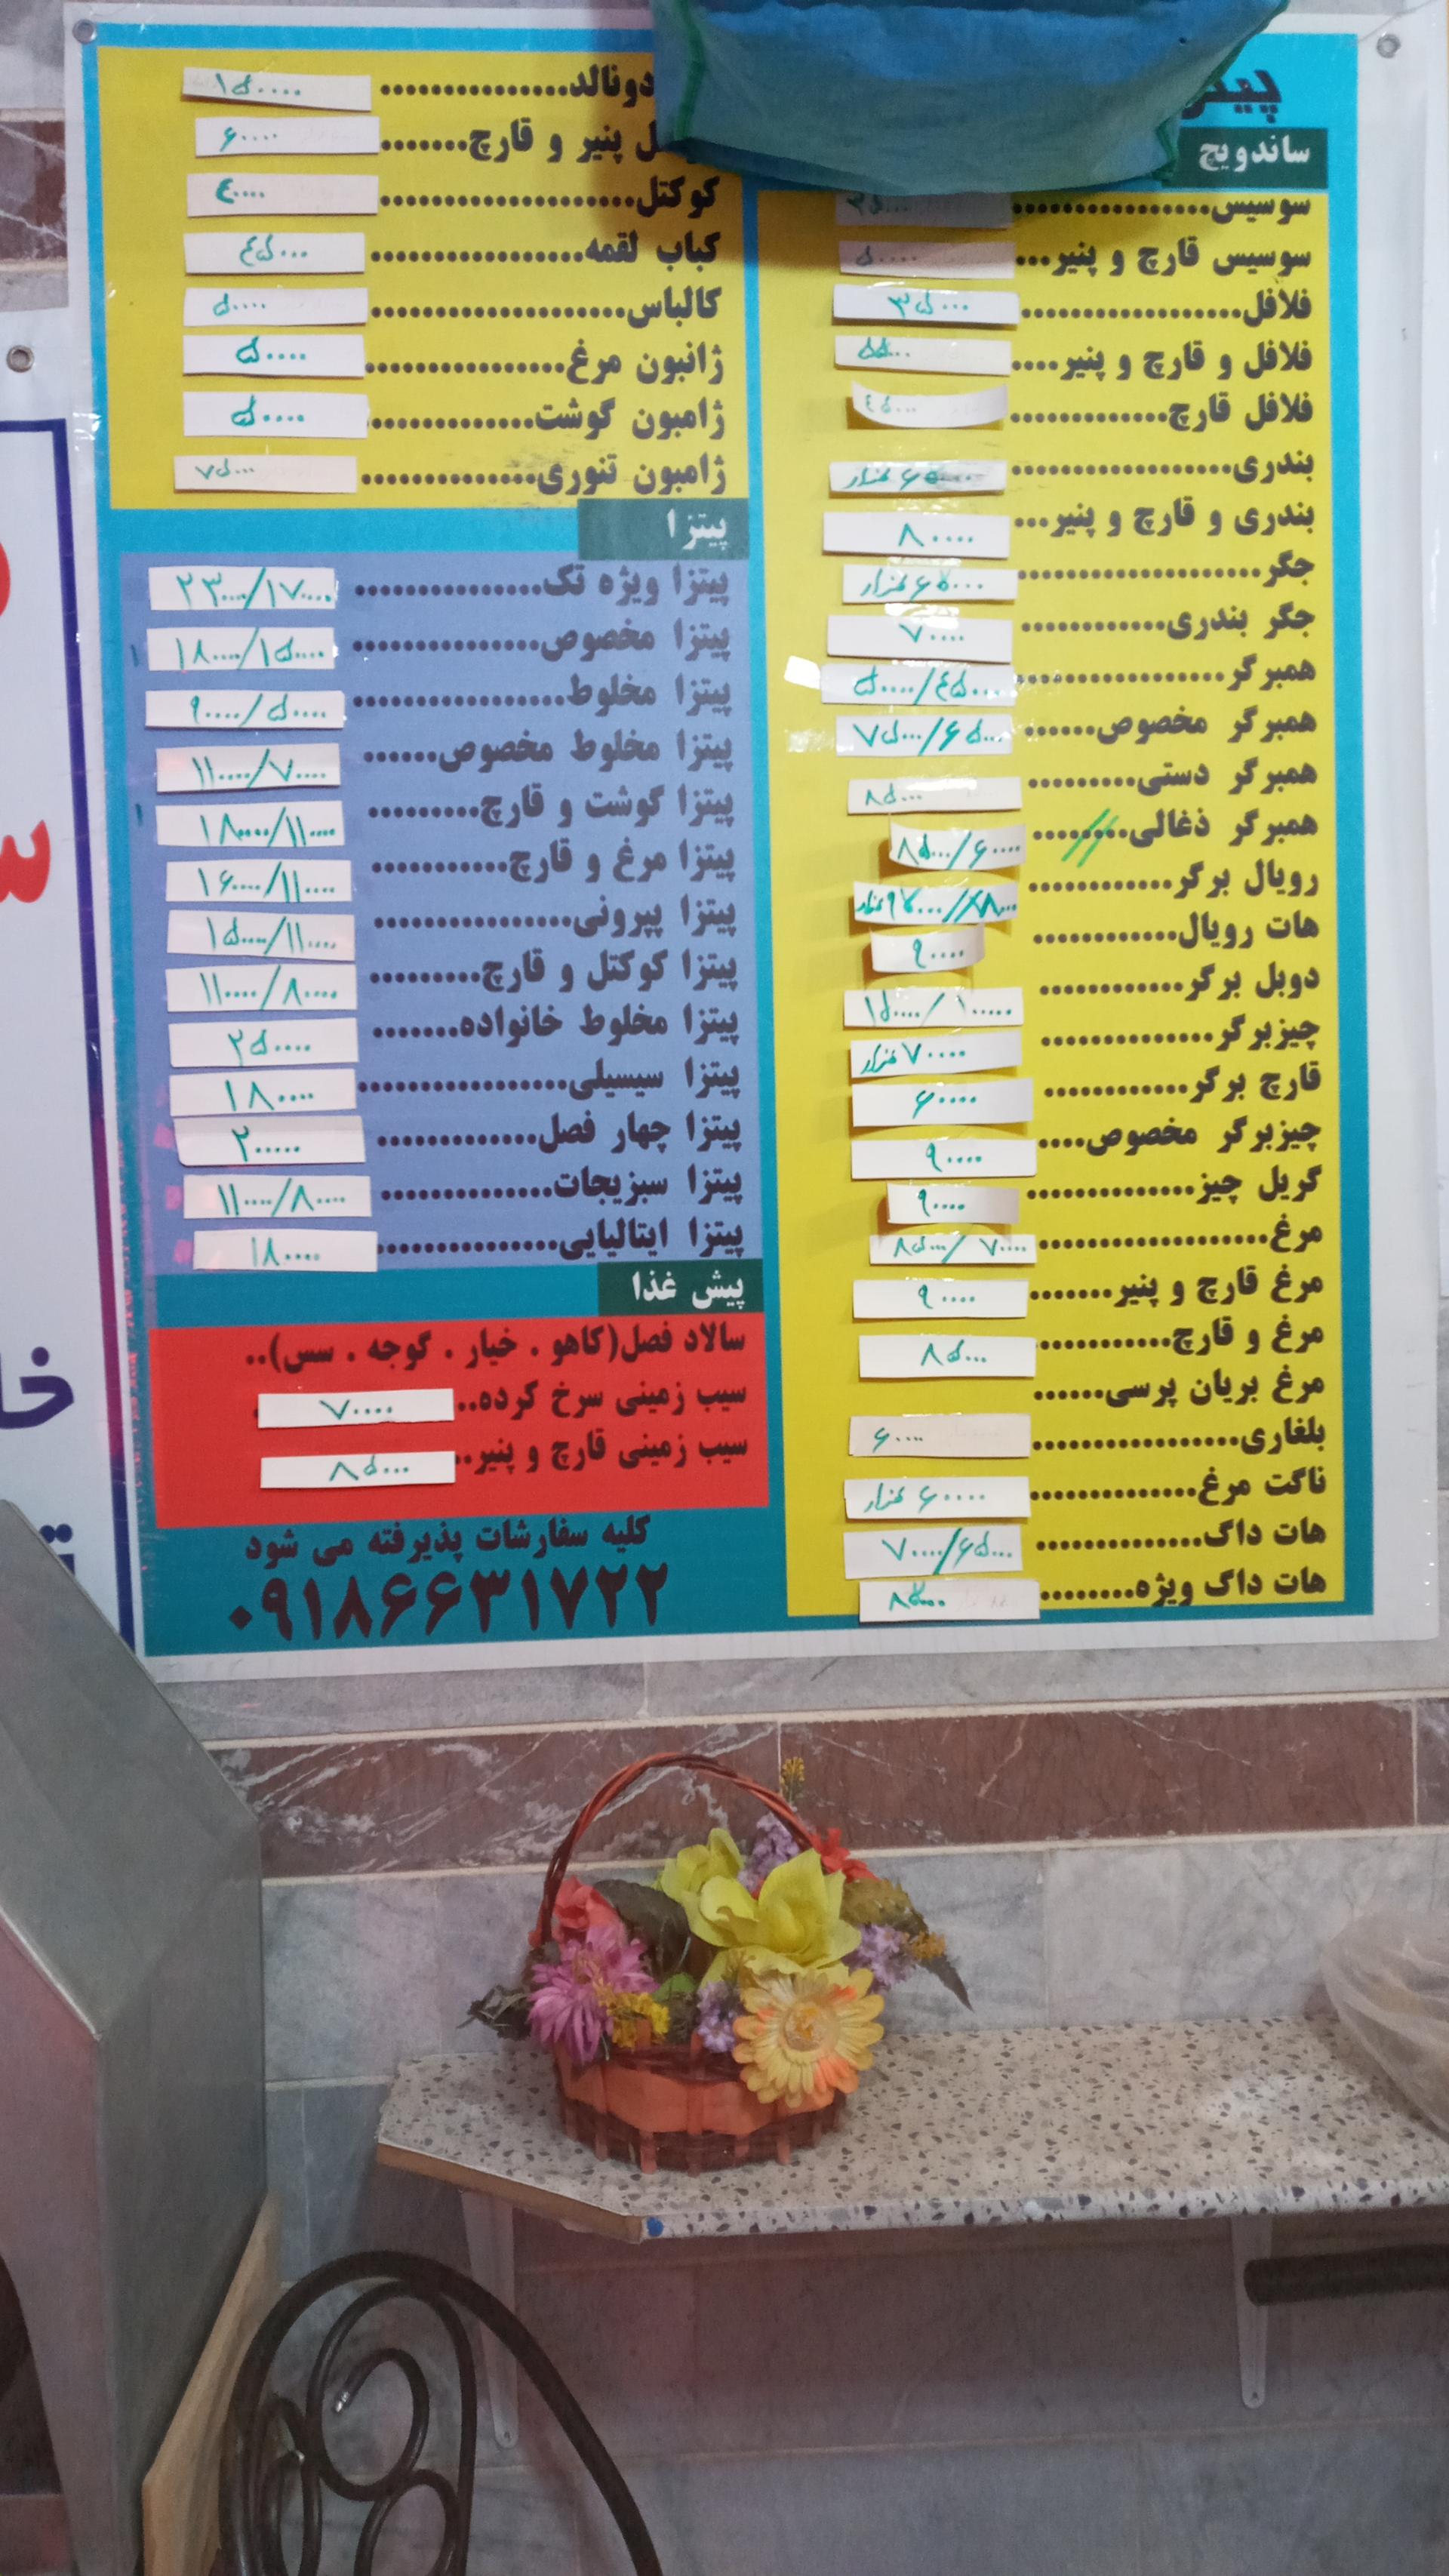 ساندویچ
سوسیس................ ۳۵۰۰۰
سوسیس قارچ و پنیر... ۵۰۰۰۰
فلافل.................. ۳۵۰۰۰
فلافل و قارچ و پنیر.... ۵۵۰۰۰
فلافل قارچ............. ۴۵۰۰۰
بندری.................. ۶۵۰۰۰ هزار
بندری و قارچ و پنیر... ۸۰۰۰۰
جگر.................... ۶۵۰۰۰ هزار
جگر بندری............ ۷۰۰۰۰
همبرگر................. ۵۰۰۰۰/۴۵۰۰۰
همبرگر مخصوص...... ۷۵۰۰۰/۶۵۰۰۰
همبرگر دستی......... ۸۵۰۰۰
همبرگر ذغالی........ ۸۵۰۰۰/۶۰۰۰۰
رویال برگر............
هات رویال............ ۹۰۰۰۰
دوبل برگر............ ۱۵۰۰۰۰/۱۰۰۰۰۰
چیزبرگر.............. ۷۰۰۰۰ هزار
قارچ برگر............ ۶۰۰۰۰
چیزبرگر مخصوص.... ۹۰۰۰۰
گریل چیز.............. ۹۰۰۰۰
مرغ................... ۸۵۰۰۰/۷۰۰۰۰
مرغ قارچ و پنیر....... ۹۰۰۰۰
مرغ و قارچ........... ۸۵۰۰۰
مرغ بریان پرسی......
بلغاری................. ۶۰۰۰۰
ناگت مرغ............. ۶۰۰۰۰ هزار
هات داگ.............. ۷۰۰۰۰/۶۵۰۰۰
هات داگ ویژه........
دونالد............... ۱۵۰۰۰۰
پنیر و قارچ....... ۶۰۰۰۰
کوکتل................... ۴۰۰۰۰
کباب لقمه................ ۴۵۰۰۰
کالباس................... ۵۰۰۰۰
ژانبون مرغ............... ۵۰۰۰۰
ژامبون گوشت............. ۵۰۰۰۰
ژامبون تنوری............. ۷۵۰۰۰
پیتزا
پیتزا ویژه تک.............. ۲۳۰۰۰۰/۱۷۰۰۰۰
پیتزا مخصوص............... ۱۸۰۰۰۰/۱۵۰۰۰۰
پیتزا مخلوط................ ۹۰۰۰۰/۵۰۰۰۰
پیتزا مخلوط مخصوص...... ۱۱۰۰۰۰/۷۰۰۰۰
پیتزا گوشت و قارچ......... ۱۸۰۰۰۰/۱۱۰۰۰۰
پیتزا مرغ و قارچ........... ۱۶۰۰۰۰/۱۱۰۰۰۰
پیتزا پپرونی................ ۱۵۰۰۰۰/۱۱۰۰۰۰
پیتزا کوکتل و قارچ......... ۱۱۰۰۰۰/۸۰۰۰۰
پیتزا مخلوط خانواده....... ۲۵۰۰۰۰
پیتزا سیسیلی................. ۱۸۰۰۰۰
پیتزا چهار فصل............. ۲۰۰۰۰۰
پیتزا سبزیجات.............. ۱۱۰۰۰۰/۸۰۰۰۰
پیتزا ایتالیایی............... ۱۸۰۰۰۰
پیش غذا
سالاد فصل(کاهو . خیار . گوجه . سس)..
سیب زمینی سرخ کرده.. ۷۰۰۰۰
سیب زمینی قارچ و پنیر.. ۸۵۰۰۰
کلیه سفارشات پذیرفته می شود
۰۹۱۸۶۶۳۱۷۲۲